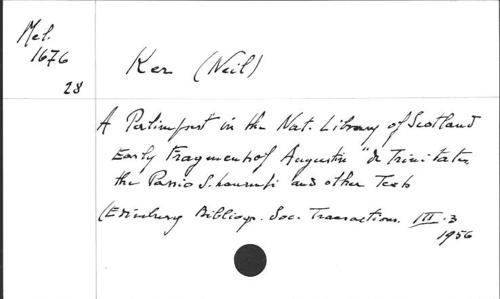 Mel.
1676
28
Ker (Neil)
A Palimpsest in the Nat. Library of Scotland
Early Fragments of Augustine "De Trinitate,
the Passio S. Laurentii and other Texts
(Edinburg Bibliogr. Soc. Transactions. III. 3
1956